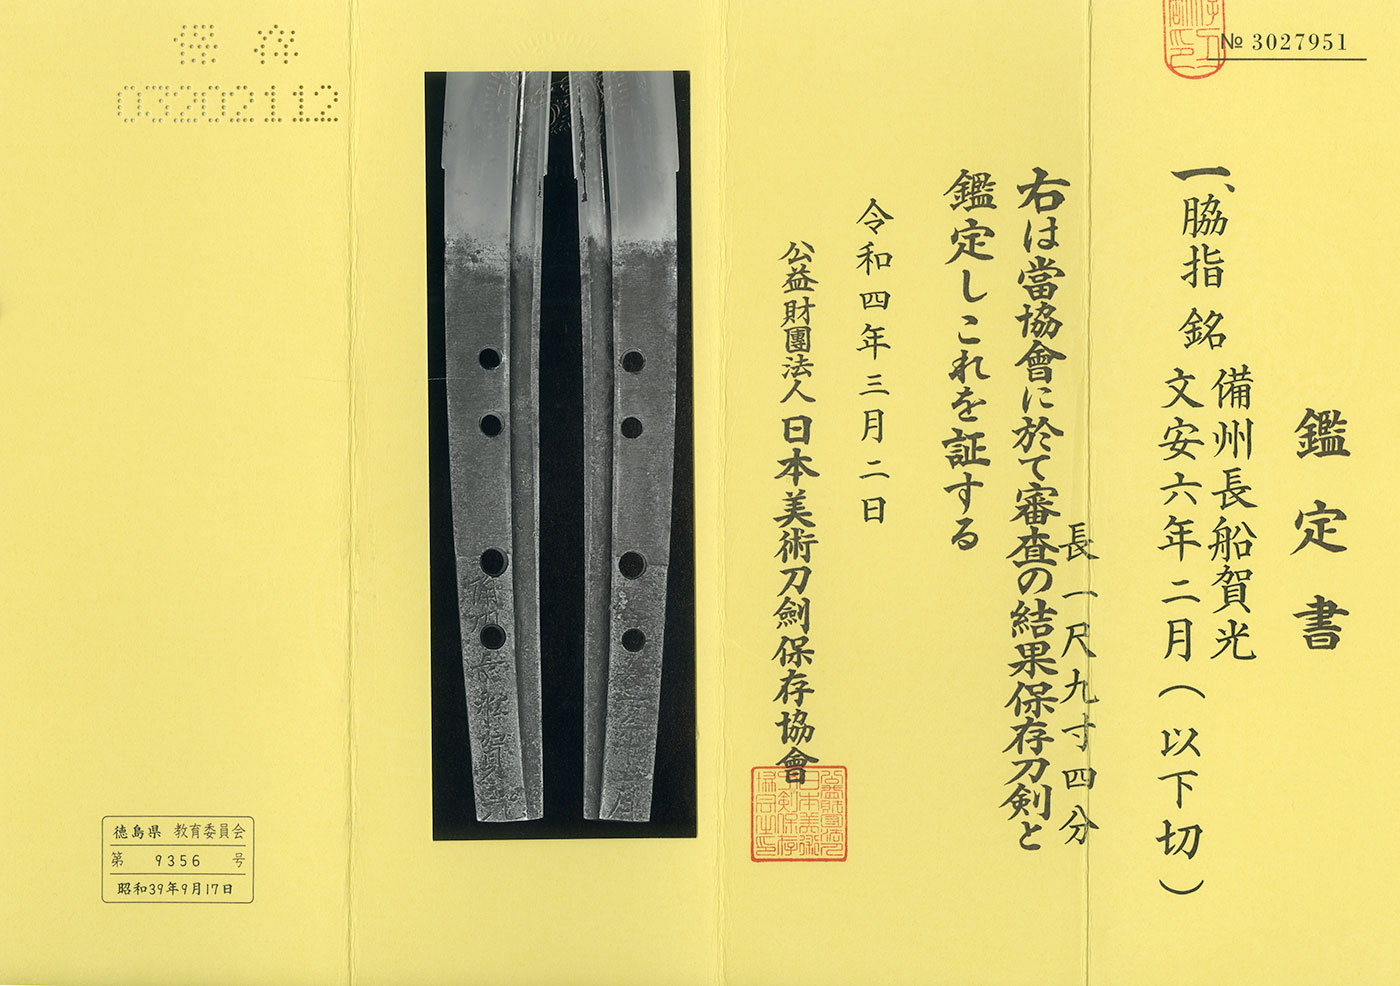 № 3027951
鑑定書
一、脇指 銘 備州長船賀光
文安六年二月(以下切)
長一尺九寸四分
右は當協會に於て審査の結果保存刀剣と
鑑定しこれを証する
令和四年三月二日
公益財團法人日本美術刀劍保存協會
保存
03202112
徳島県 教育委員会
第 9356 号
昭和39年9月17日